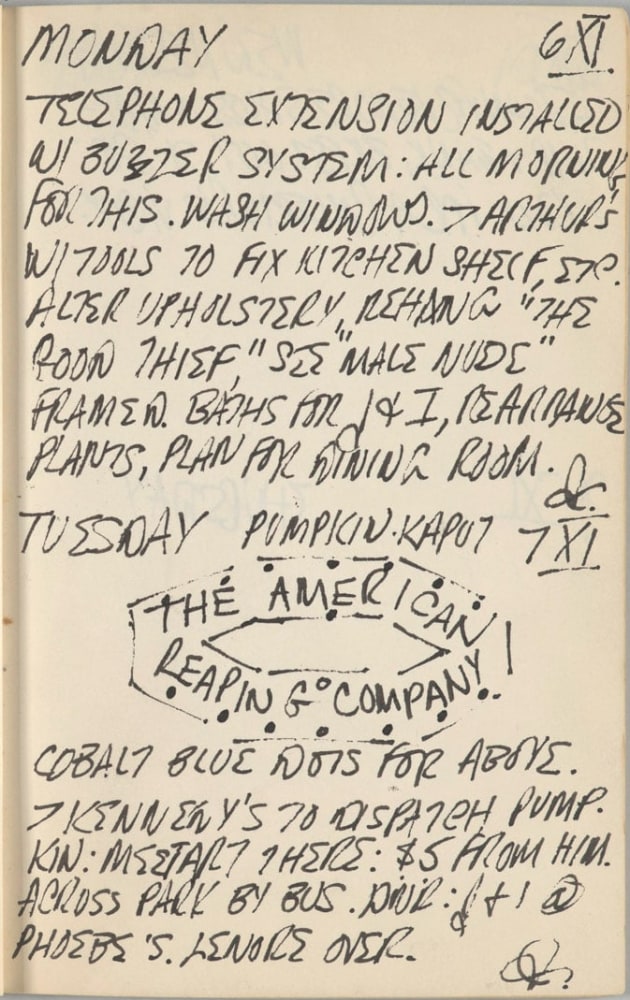 MONDAY 6 XI
TELEPHONE EXTENSION INSTALLED
W/ BUZZER SYSTEM: ALL MORNING
FOR THIS. WASH WINDOWS. > ARTHUR'S
W/ TOOLS TO FIX KITCHEN SHELF, ETC.
ALTER UPHOLSTERY, REHANG "THE
FOOD THIEF," SEE "MALE NUDE"
FRAMED. BATHS FOR J & I, REARRANGE
PLANTS, PLAN FOR DINING ROOM.
TUESDAY PUMPKIN·KAPUT 7 XI
THE AMERICAN
REAPING COMPANY
COBALT BLUE DOTS FOR ABOVE.
> KENNEDY'S TO DISPATCH PUMP-
KIN: MEET ART THERE: $5 FROM HIM.
ACROSS PARK BY BUS. DINR: J + I @
PHOEBE'S. LENORE OVER.